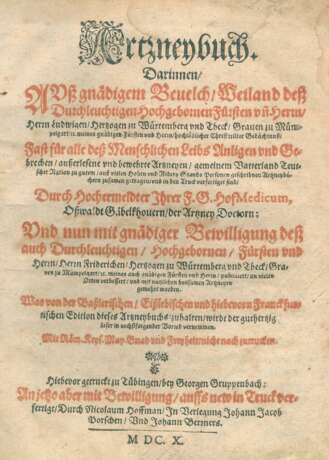 Artzneybuch.
Darinnen/
Auß gnädigem Beuelch/ Weiland deß
Durchleuchtigen Hochgebornen Fürsten vñ Herrn/
Herrn Ludwigen/ Hertzogen zu Würtemberg vnd Theck/ Grauen zu Müm-
pelgart/ ꝛc. meines gnädigen Fürsten vnd Herrn/ hochlöblicher Christlicher Gedächtnuß/
Fast für alle deß Menschlichen Leibs Anligen vnd Ge-
brechen/ außerlesene vnd bewehrte Artzneyen/ gemeinem Vatterland Teut-
scher Nation zu gutem/ auß vielen Hohen vnd Nidern Stands Personen geschribnen Artzneybü-
chern zusamen getragen vnd in den Truck verfertiget sind/
Durch Hochermelter Ihrer F. G. HofMedicum,
Oßwaldt Gäbelkhouern/ der Artzney Doctorn:
Vnd nun mit gnädiger Bewilligung deß
auch Durchleuchtigen/ Hochgebornen/ Fürsten vnd
Herrn/ Herrn Friderichen/ Hertzogen zu Würtemberg vnd Theck/ Gra-
uen zu Mümpelgart/ ꝛc. meines auch gnädigen Fürsten vnd Herrn/ publiciert/ an vielen
Orten verbessert/ vnd mit nutzlichen heilsamen Artzneyen
gemehrt worden.
Was von der Baßlerischen/ Eißlebischen vnd hiebevorn Franckfur-
tischen Edition dieses Artzneybuchs zuhalten/ wirdt der guthertzig
Leser in nechstfolgender Vorred vernemmen.
Mit Röm. Keys. May. Gnad vnd Freyheit nicht nach zutrucken.
Hiebevor getruckt zu Tübingen/ bey Georgen Gruppenbach:
An jetzo aber mit Bewilligung/ auffs new in Truck ver-
fertigt/ Durch Nicolaum Hoffman/ In Verlegung Johann Jacob
Porschen/ Vnd Johann Berners.
M DC. X.